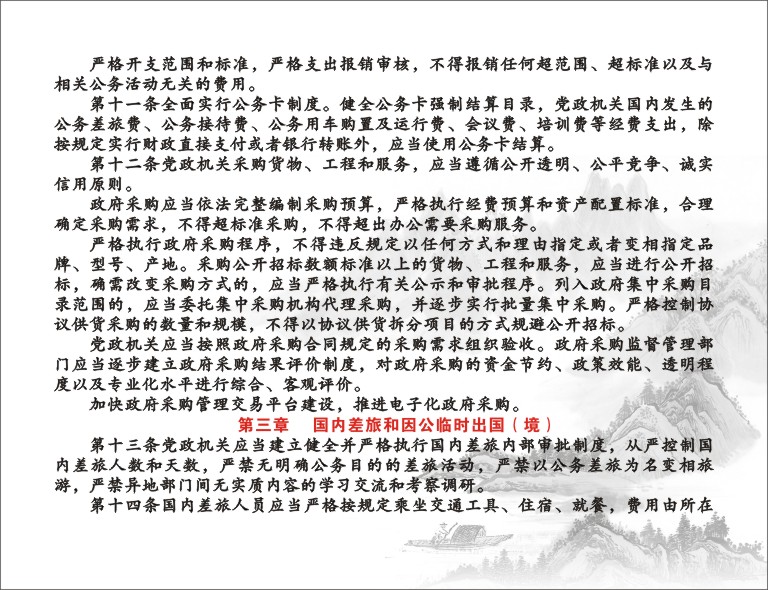 严格开支范围和标准，严格支出报销审核，不得报销任何超范围、超标准以及与
相关公务活动无关的费用。
第十一条全面实行公务卡制度。健全公务卡强制结算目录，党政机关国内发生的
公务差旅费、公务接待费、公务用车购置及运行费、会议费、培训费等经费支出，除
按规定实行财政直接支付或者银行转账外，应当使用公务卡结算。
第十二条党政机关采购货物、工程和服务，应当遵循公开透明、公平竞争、诚实
信用原则。
政府采购应当依法完整编制采购预算，严格执行经费预算和资产配置标准，合理
确定采购需求，不得超标准采购，不得超出办公需要采购服务。
严格执行政府采购程序，不得违反规定以任何方式和理由指定或者变相指定品
牌、型号、产地。采购公开招标数额标准以上的货物、工程和服务，应当进行公开招
标，确需改变采购方式的，应当严格执行有关公示和审批程序。列入政府集中采购目
录范围的，应当委托集中采购机构代理采购，并逐步实行批量集中采购。严格控制协
议供货采购的数量和规模，不得以协议供货拆分项目的方式规避公开招标。
党政机关应当按照政府采购合同规定的采购需求组织验收。政府采购监督管理部
门应当逐步建立政府采购结果评价制度，对政府采购的资金节约、政策效能、透明程
度以及专业化水平进行综合、客观评价。
加快政府采购管理交易平台建设，推进电子化政府采购。
第三章　国内差旅和因公临时出国（境）
第十三条党政机关应当建立健全并严格执行国内差旅内部审批制度，从严控制国
内差旅人数和天数，严禁无明确公务目的的差旅活动，严禁以公务差旅为名变相旅
游，严禁异地部门间无实质内容的学习交流和考察调研。
第十四条国内差旅人员应当严格按规定乘坐交通工具、住宿、就餐，费用由所在